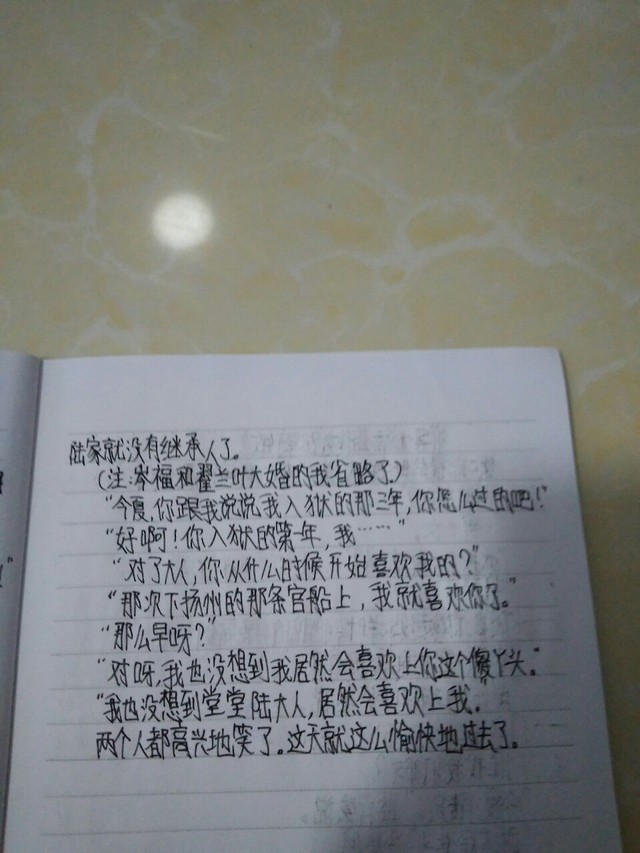 陆家就没有继承人了。
(注:岑福和翟兰叶大婚的我省略了)
“今夏,你跟我说说我入狱的那三年,你怎么过的吧!”
“好啊!你入狱的第一年,我……”
“对了大人,你从什么时候开始喜欢我的?”
“那次下扬州的那条官船上,我就喜欢你了。”
“那么早呀?”
“对呀,我也没想到我居然会喜欢上你这个傻丫头。”
“我也没想到堂堂陆大人,居然会喜欢上我。”
两个人都高兴地笑了。这天就这么愉快地过去了。